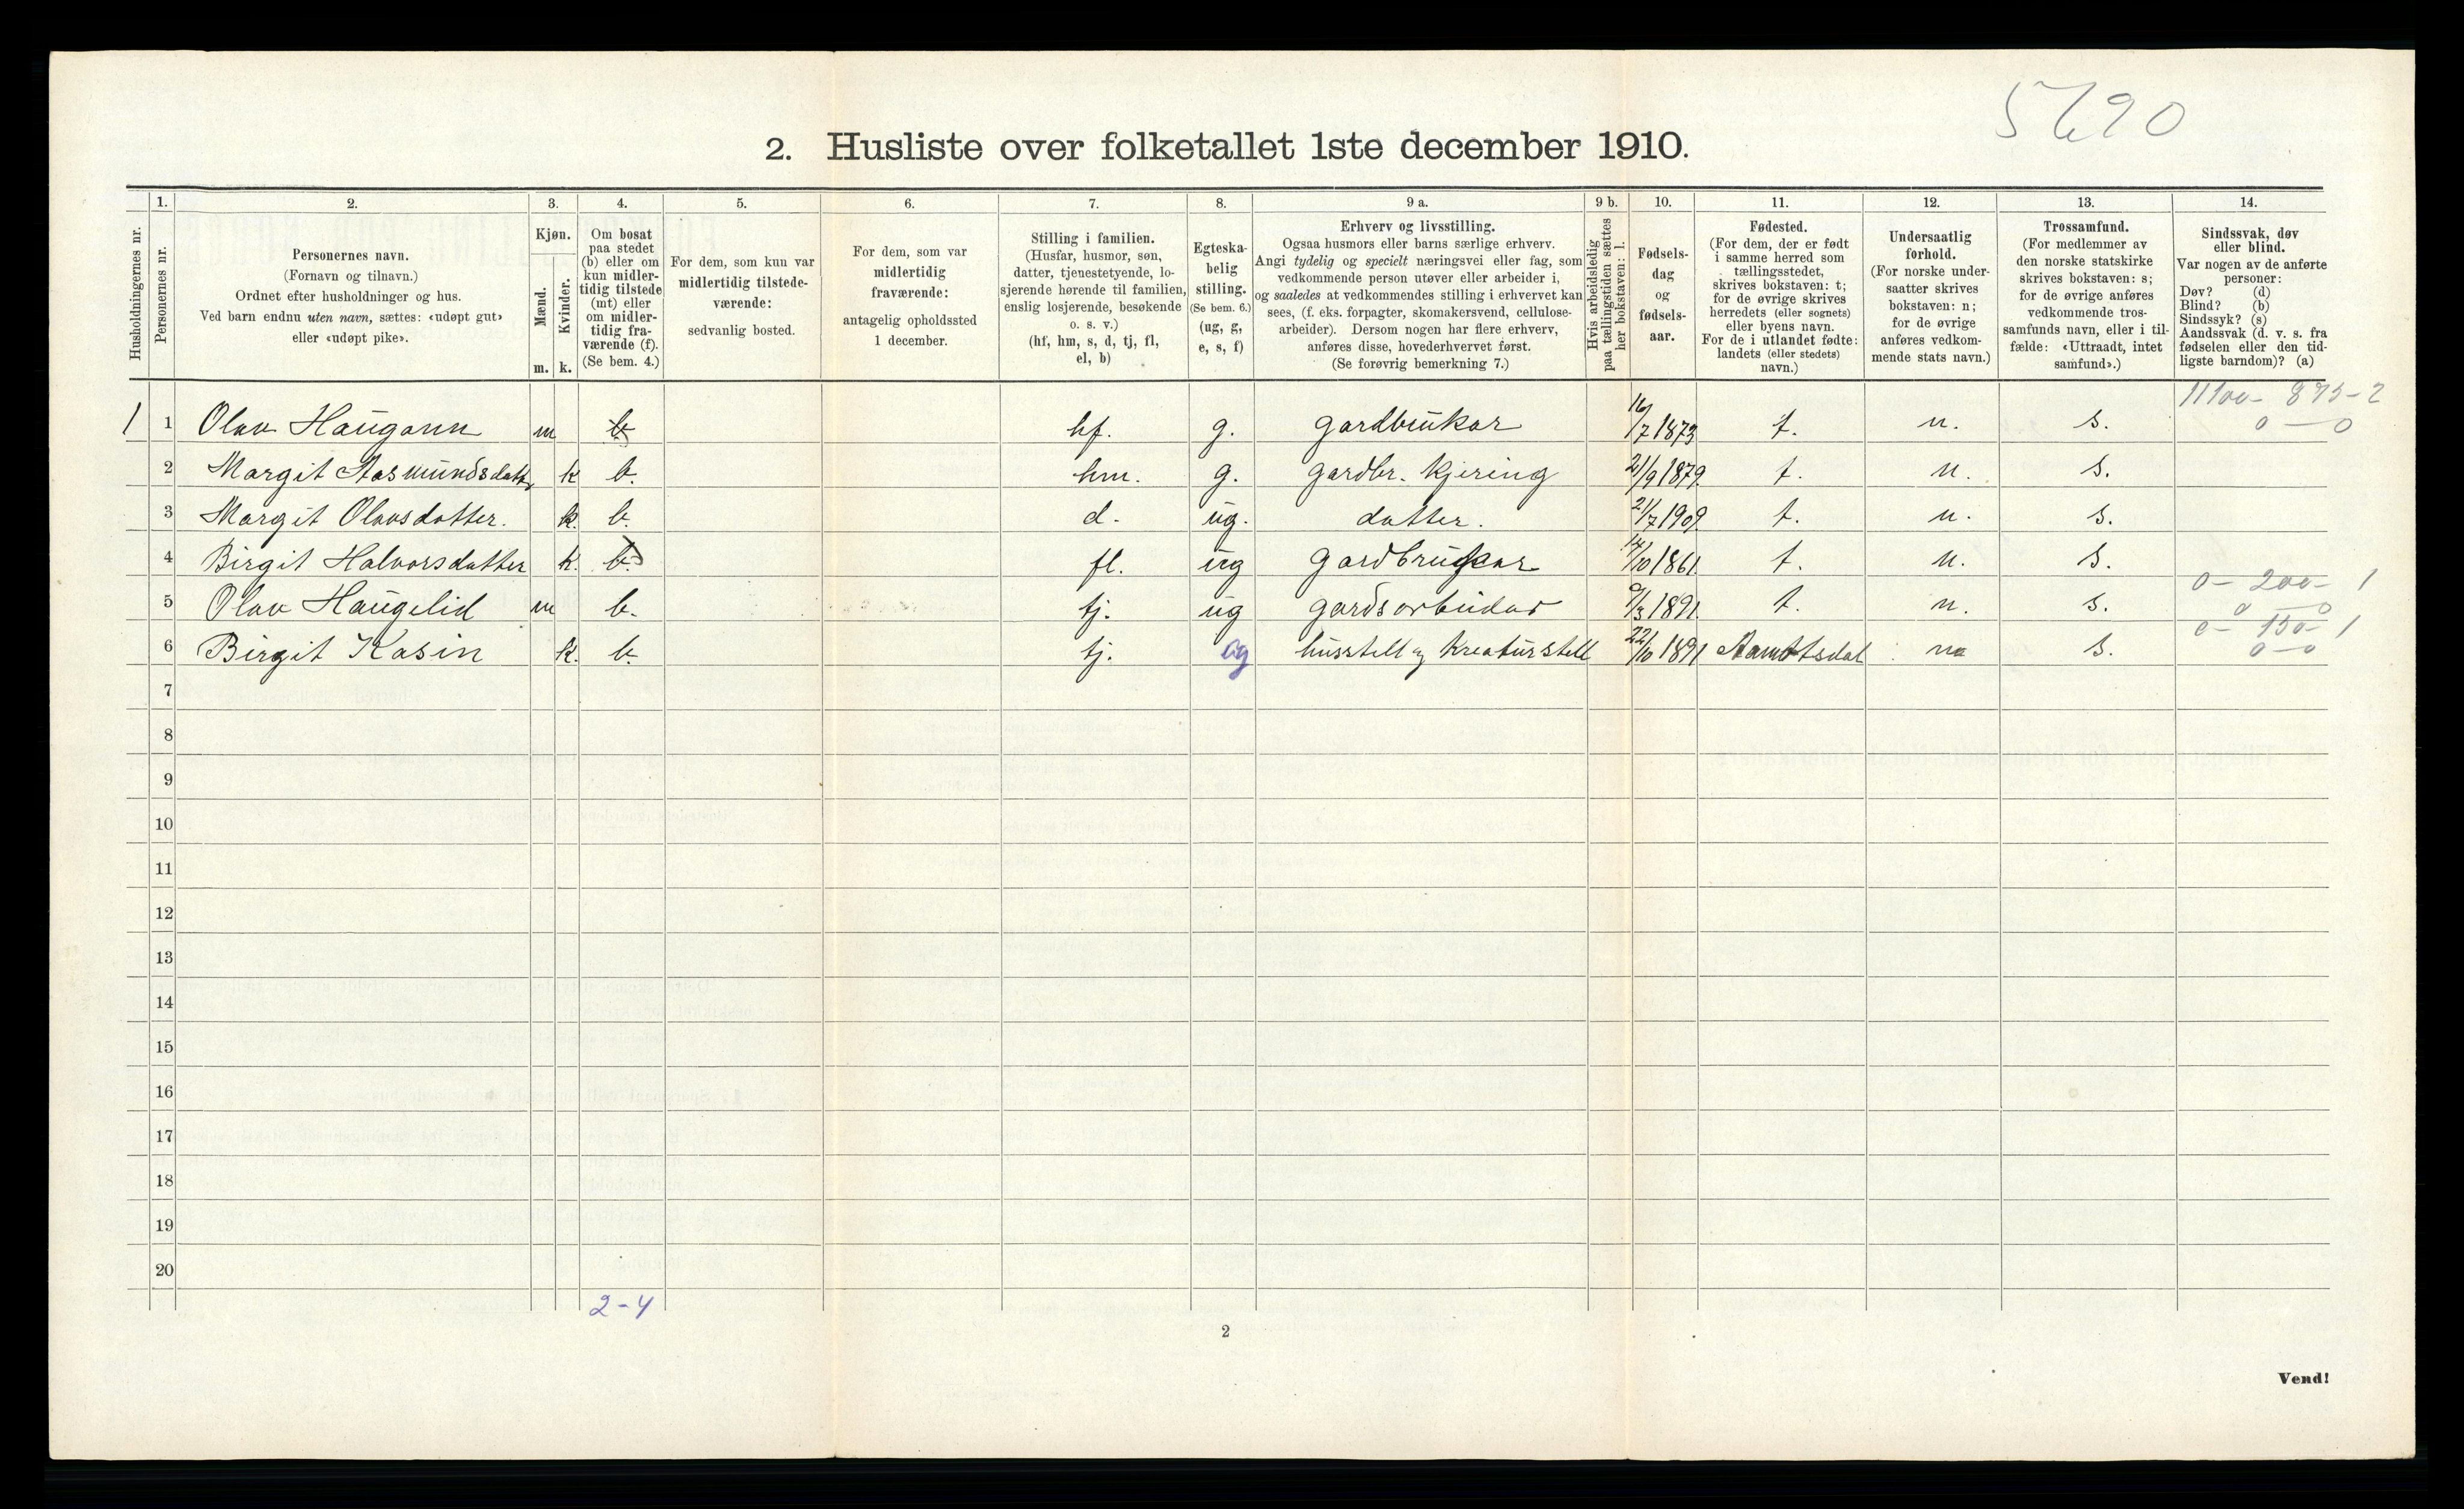 5690
2. Husliste over folketallet 1ste december 1910.
Husholdningernes nr.
1. Personernes nr.
2. Personernes navn.
(Fornavn og tilnavn.)
Ordnet efter husholdninger og hus.
Ved barn endnu uten navn, sættes: «udøpt gut»
eller «udøpt pike».
3. Kjøn.
Mænd. Kvinder.
m. k.
4. Om bosat
paa stedet
(b) eller om
kun midler-
tidig tilstede
(mt) eller
om midler-
tidig fra-
værende (f).
(Se bem. 4.)
5. For dem, som kun var
midlertidig tilstede-
værende:
sedvanlig bosted.
6. For dem, som var
midlertidig
fraværende:
antagelig opholdssted
1 december.
7. Stilling i familien.
(Husfar, husmor, søn,
datter, tjenestetyende, lo-
sjerende hørende til familien,
enslig losjerende, besøkende
o. s. v.)
(hf, hm, s, d, tj, fl,
el, b)
8. Egteska-
belig
stilling.
(Se bem. 6.)
(ug, g,
e, s, f)
9 a. Erhverv og livsstilling.
Ogsaa husmors eller barns særlige erhverv.
Angi tydelig og specielt næringsvei eller fag, som
vedkommende person utøver eller arbeider i,
og saaledes at vedkommendes stilling i erhvervet kan
sees, (f. eks. forpagter, skomakersvend, cellulose-
arbeider). Dersom nogen har flere erhverv,
anføres disse, hovederhvervet først.
(Se forøvrig bemerkning 7.)
9 b. Hvis arbeidsledig
paa tællingstiden sættes
her bokstaven: l.
10. Fødsels-
dag
og
fødsels-
aar.
11. Fødested.
(For dem, der er født
i samme herred som
tællingsstedet,
skrives bokstaven: t;
for de øvrige skrives
herredets (eller sognets)
eller byens navn.
For de i utlandet fødte:
landets (eller stedets)
navn.)
12. Undersaatlig
forhold.
(For norske under-
saatter skrives
bokstaven: n;
for de øvrige
anføres vedkom-
mende stats navn.)
13. Trossamfund.
(For medlemmer av
den norske statskirke
skrives bokstaven: s;
for de øvrige anføres
vedkommende tros-
samfunds navn, eller i til-
fælde: «Uttraadt, intet
samfund».)
14. Sindssvak, døv
eller blind.
Var nogen av de anførte
personer:
Døv? (d)
Blind? (b)
Sindssyk? (s)
Aandssvak (d. v. s. fra
fødselen eller den tid-
ligste barndom)? (a)
11100- 875-2
1 1 Olav Haugann m b hf. g. gardbrukar 16/7 1873 t. n. s. 0 — 0
2 Margit Aasmundsdatter k b. hm. g. gardbr. kjering 21/9 1879. t. n. s.
3 Margit Olavsdatter. k. b. d. ug. datter. 21/7 1909. t. n. s.
4 Birgit Halvorsdatter k. b. fl. ug gardbrukar 14/10 1861. t. n. s.
0- 200- 1
5 Olav Haugelid m b. tj. ug gardsarbeidar 9/3 1891. t. n. s. 0 — 0
0- 150- 1
6 Birgit Kasin k. b. tj. ug husstell og kreaturstell 22/10 1891 Aamotsdal n s. 0 — 0
7
8
9
10
11
12
13
14
15
16
17
18
19
20
2-4
2
Vend!